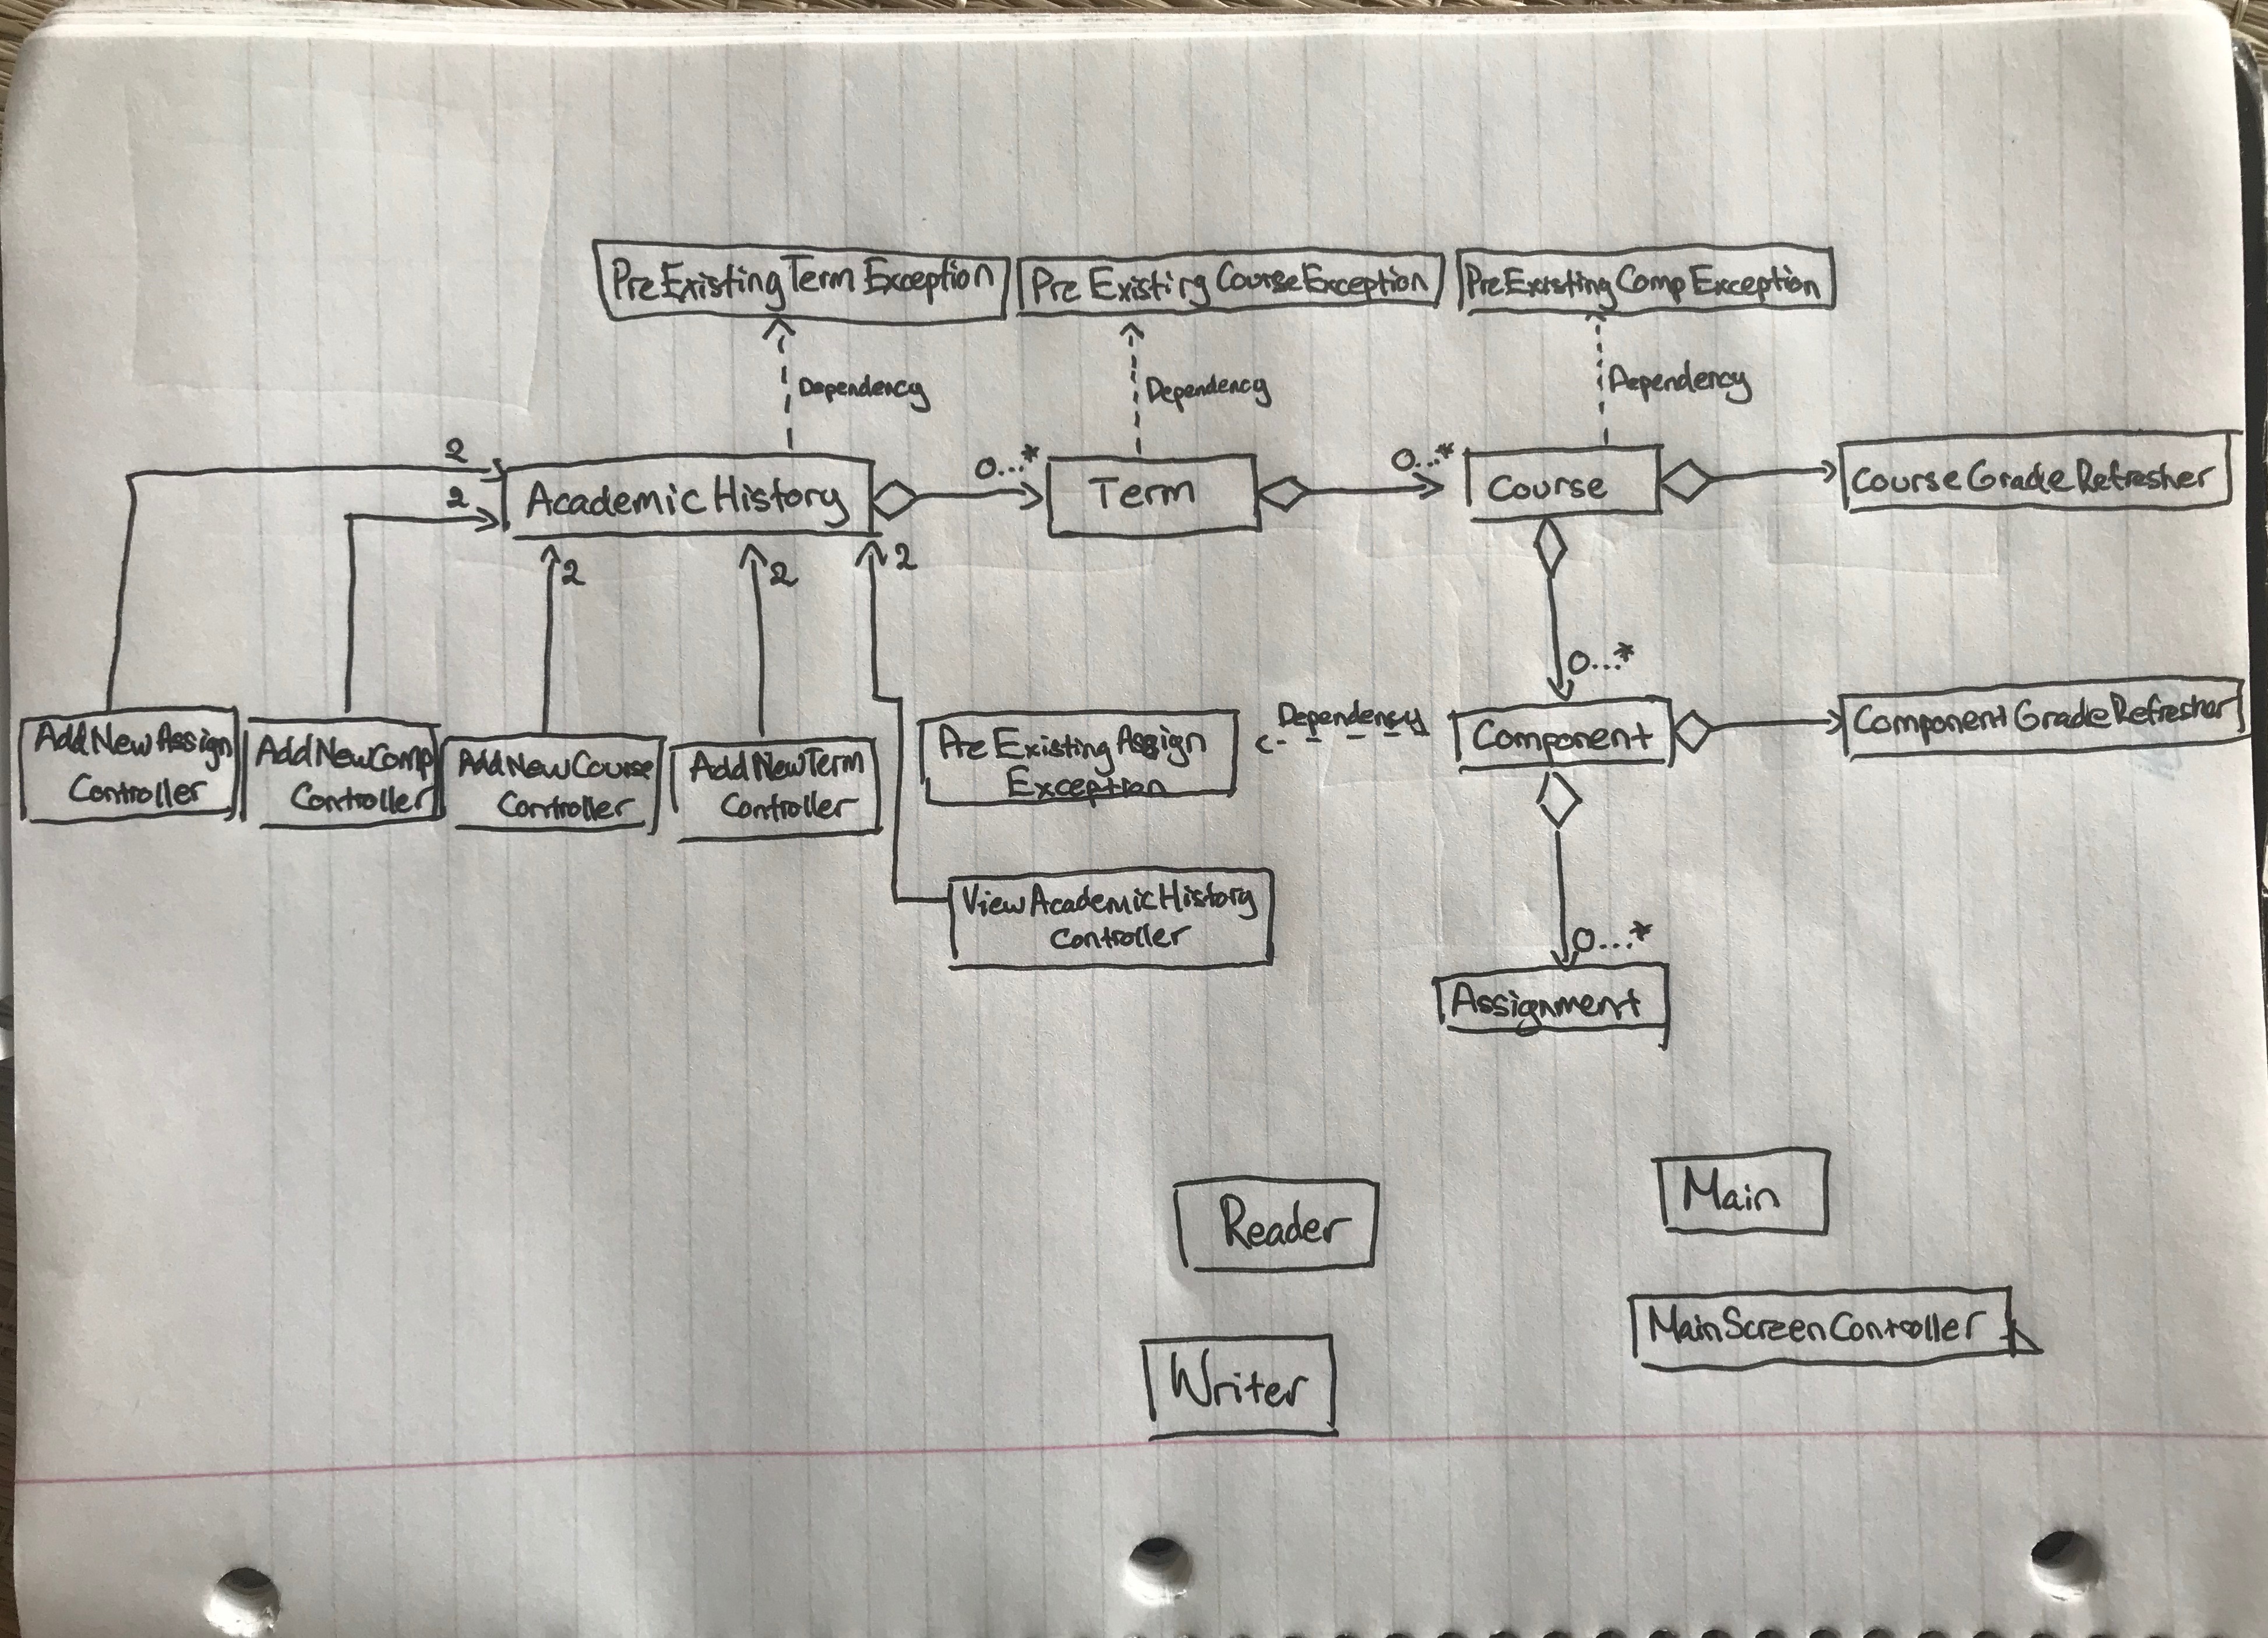 PreExistingTermException
PreExistingCourseException
PreExistingCompException
Dependency
Dependency
Dependency
2
2
AcademicHistory
0...*
Term
0...*
Course
CourseGradeRefresher
2
2
2
0...*
AddNewAssign
Controller
AddNewComp
Controller
AddNewCourse
Controller
AddNewTerm
Controller
PreExistingAssign
Exception
Dependency
Component
ComponentGradeRefresher
ViewAcademicHistory
Controller
0...*
Assignment
Reader
Main
Writer
MainScreenController